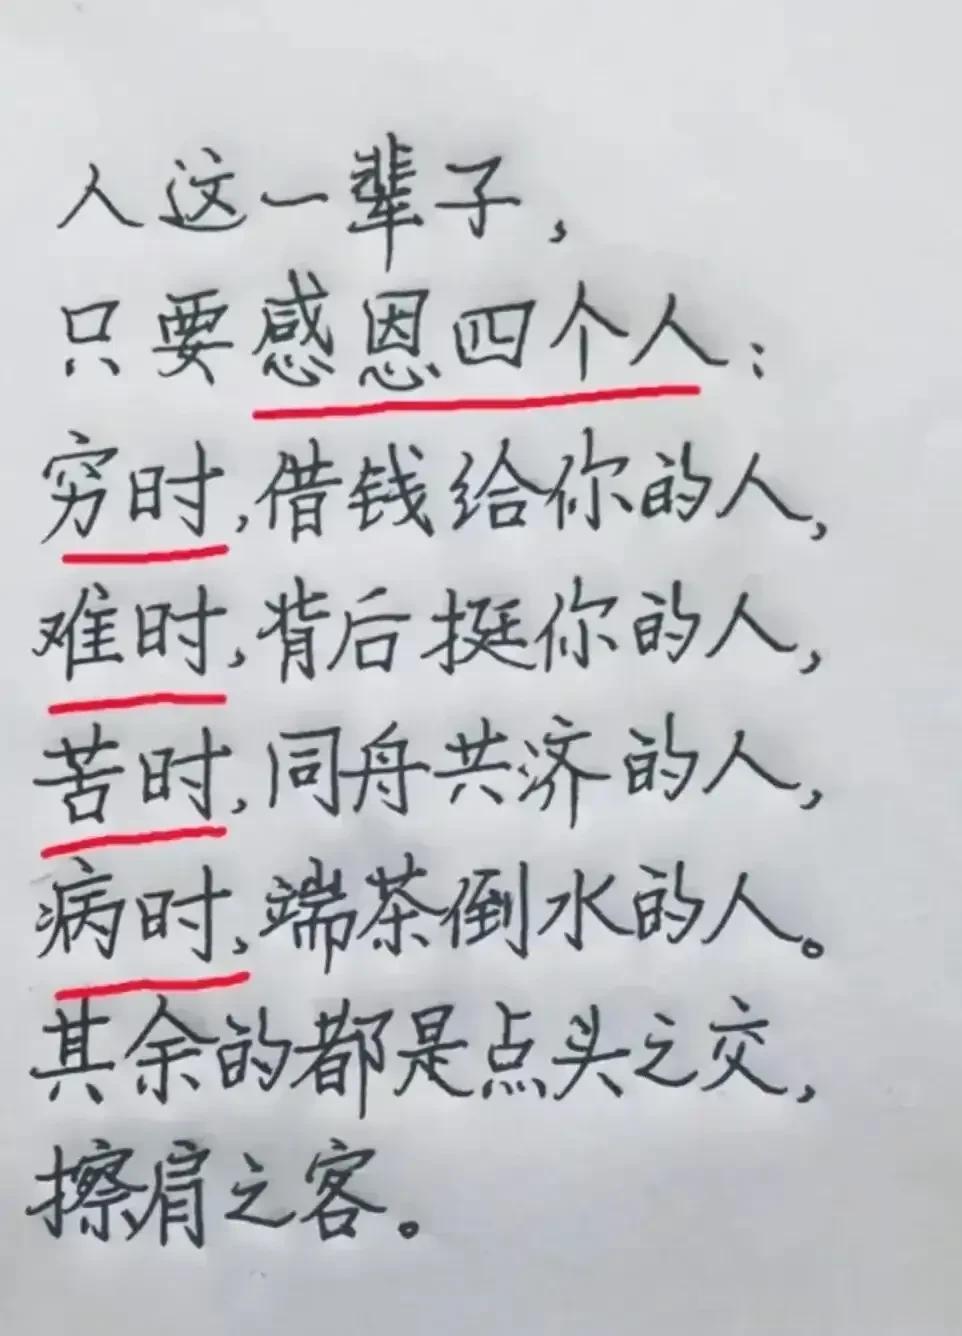 人这一辈子,
只要感恩四个人:
穷时,借钱给你的人,
难时,背后挺你的人,
苦时,同舟共济的人,
病时,端茶倒水的人。
其余的都是点头之交,
擦肩之客。